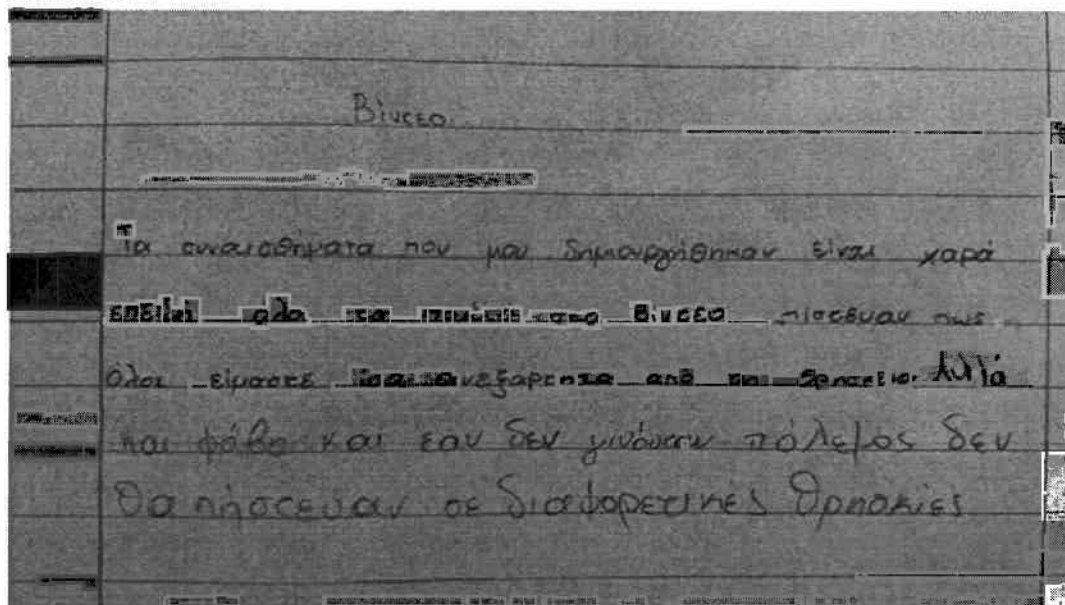 Βίντεο
Τα συναισθήματα που μου δημιουργήθηκαν είναι χαρά
επειδή όλα τα παιδιά στο βίντεο πίστευαν πως
όλοι είμαστε ίσοι ανεξάρτητα από τη θρησκεία. Αλλά
και φόβο και εαν δεν γινόταν πόλεμος δεν
θα πήστευαν σε διαφορετικές θρησκίες